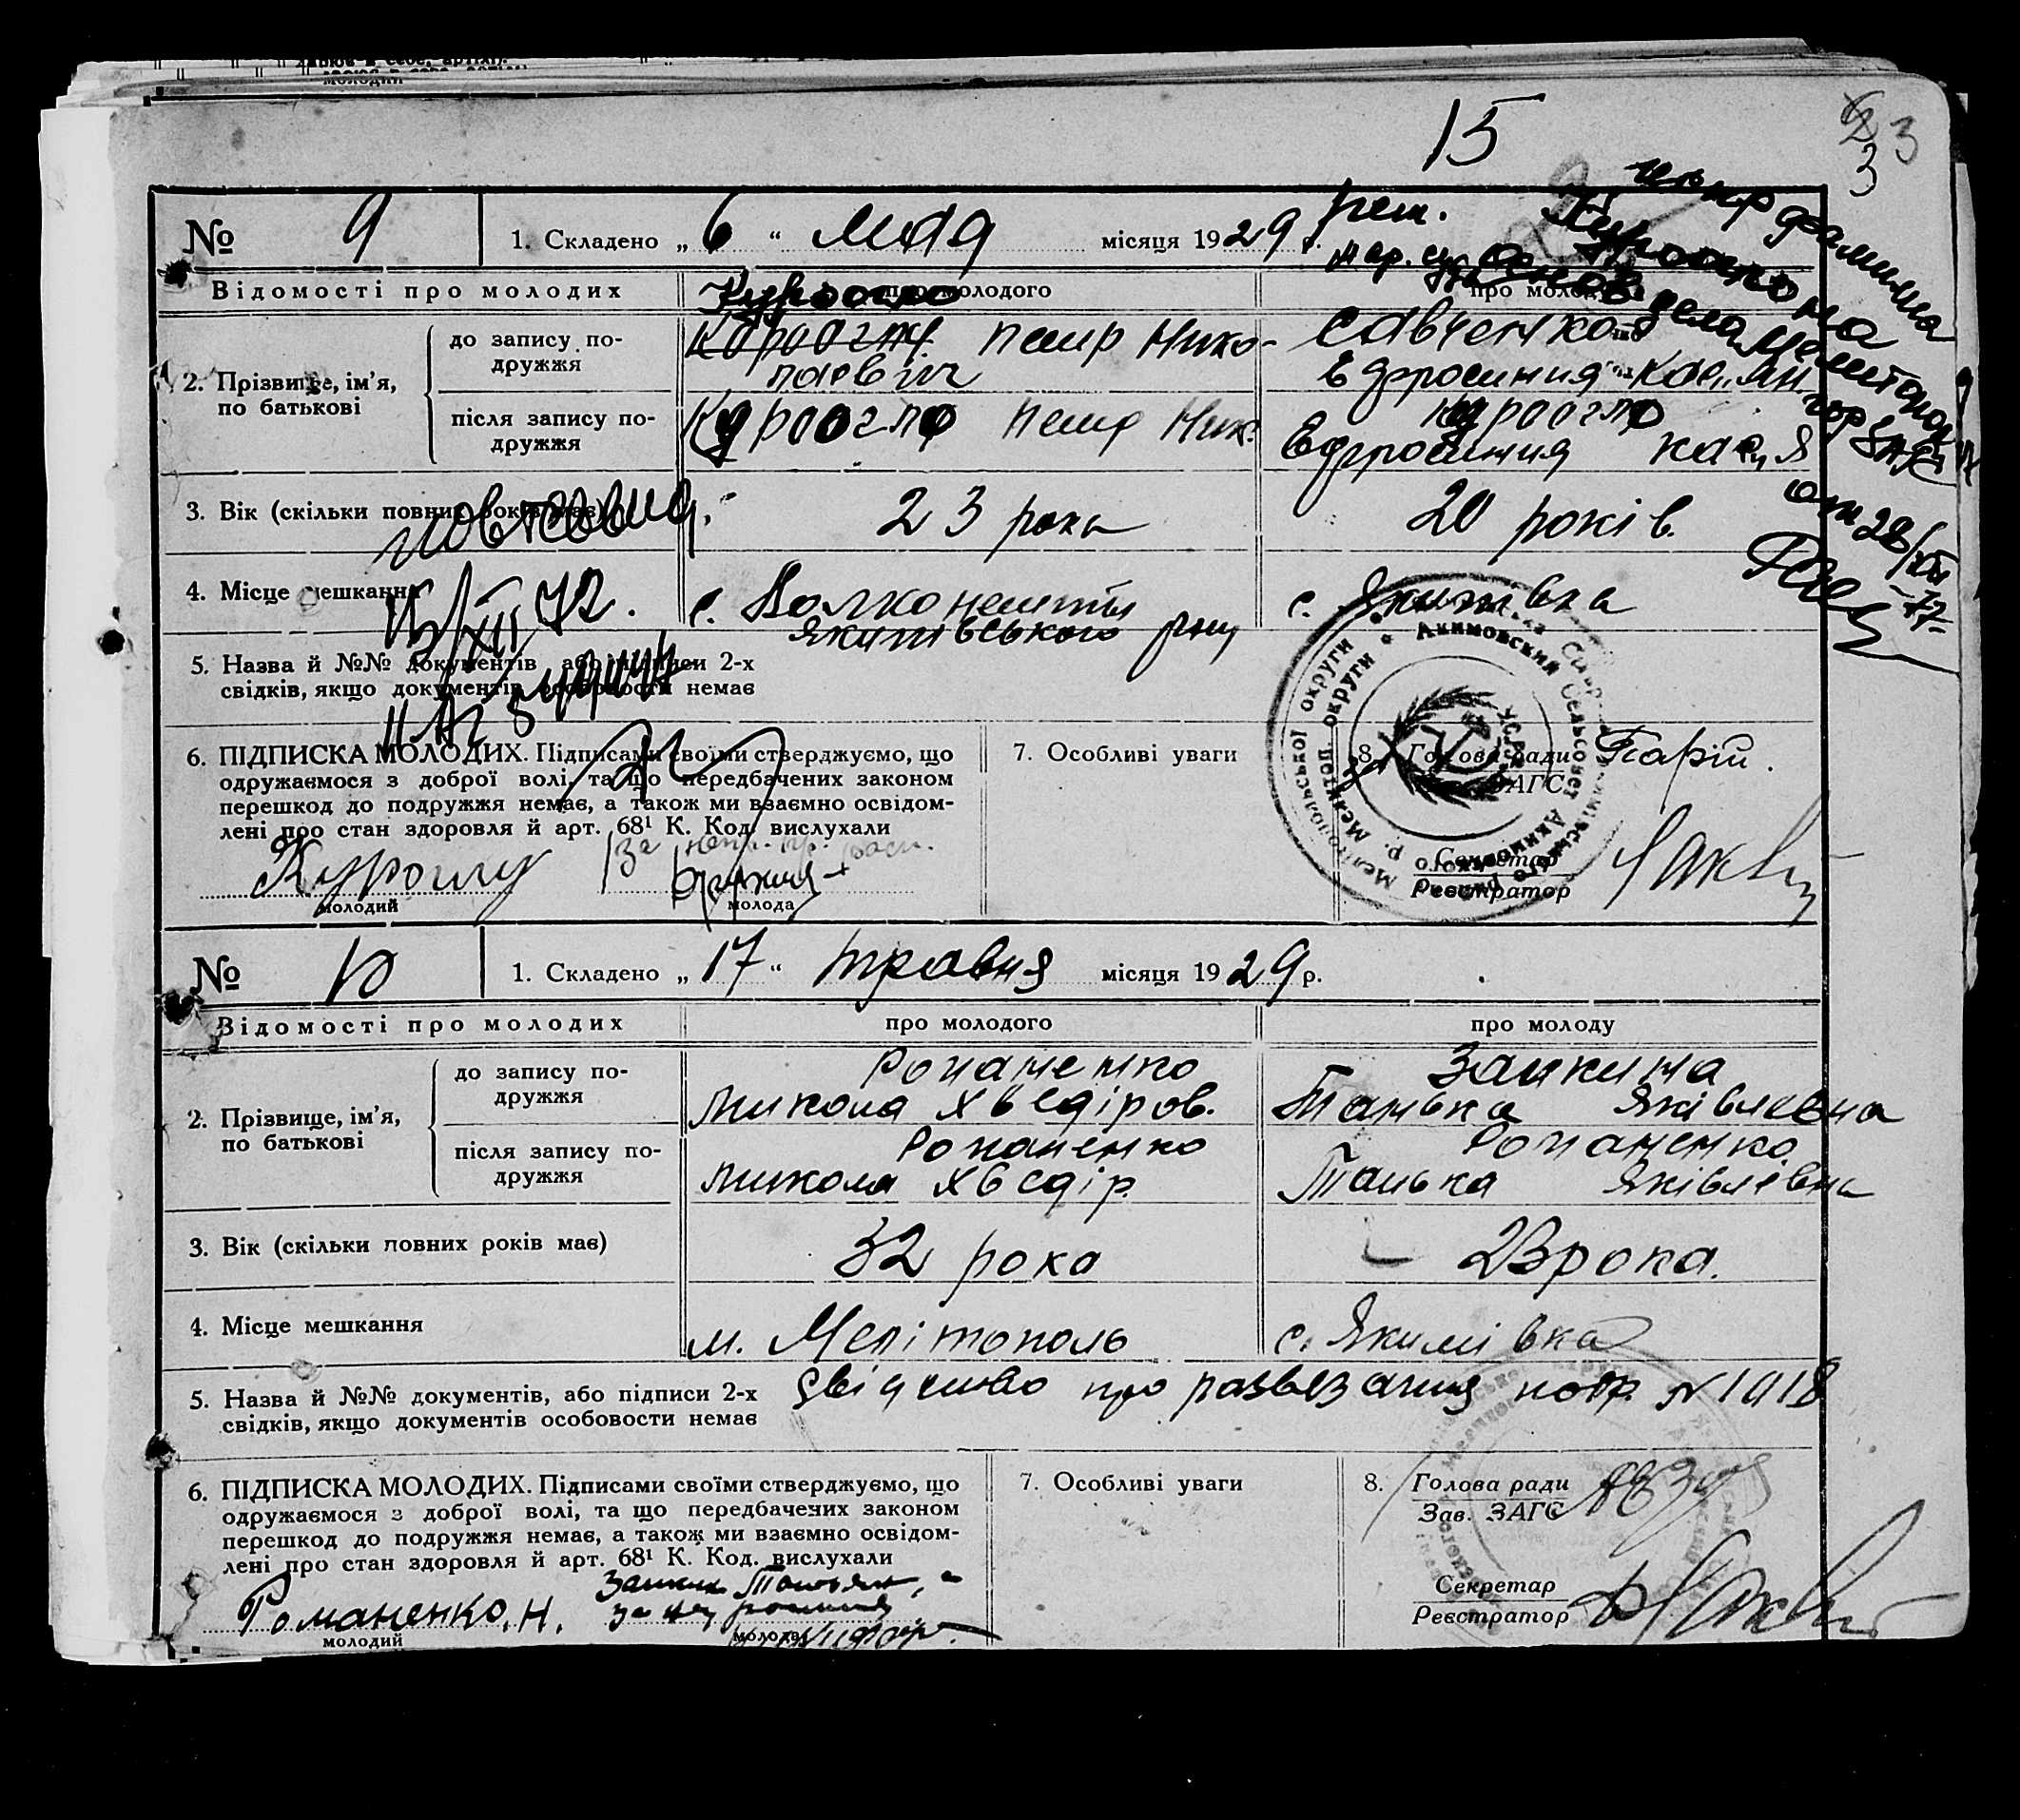 15
3
3
№ 9
1. Складено „ 6 “ мая місяця 1929 р.
реш.
нар. суд
фамилия
на
от 28/XII-77-
Відомості про молодих
про молодого
2. Прізвище, ім’я, по батькові
до запису подружжя
Петр Нико-
лаевич
Савченко
Ефросиния
після запису подружжя
Курогло Петр Ник.
Курогло
Ефросиния
3. Вік (скільки повних років має)
23 рока
20 років.
повт. свид.
15/XII 72.
4. Місце мешкання
с.
Якимівського р-ну
с. Якимівка
5. Назва й №№ документів або підписи 2-х
свідків, якщо документів особовости немає
6. ПІДПИСКА МОЛОДИХ. Підписами своїми стверджуємо, що
одружаємося з доброї волі, та що передбачених законом
перешкод до подружжя немає, а також ми взаємно освідом-
лені про стан здоровля й арт. 68¹ К. Код. вислухали
молодий
молода
7. Особливі уваги
8. Голова ради
ЗАГС
Секретар
Реєстратор
Акимовский Сельсовет Акимовского района р. Мелитоп округи
№ 10
1. Складено „ 17 “ травня місяця 1929 р.
Відомості про молодих
про молодого
про молоду
2. Прізвище, ім’я,
по батькові
до запису по-
дружжя
Романенко
Микола Хведіров.
Заикина
Танька Яківлевна
після запису по-
дружжя
Романенко
Микола Хведір.
Романенко
Танька Яківлівна
3. Вік (скільки повних років має)
32 рока
23 рока.
4. Місце мешкання
м. Мелітополь
с. Якимівка
5. Назва й №№ документів, або підписи 2-х
свідків, якщо документів особовости немає
про развезания подр. N 1918
6. ПІДПИСКА МОЛОДИХ. Підписами своїми стверджуємо, що
одружаємося з доброї волі, та що передбачених законом
перешкод до подружжя немає, а також ми взаємно освідом-
лені про стан здоровля й арт. 68¹ К. Код. вислухали
Романенко, Н.
молодий
молода
7. Особливі уваги
8. Голова ради
Зав. ЗАГС
Секретар
Реєстратор